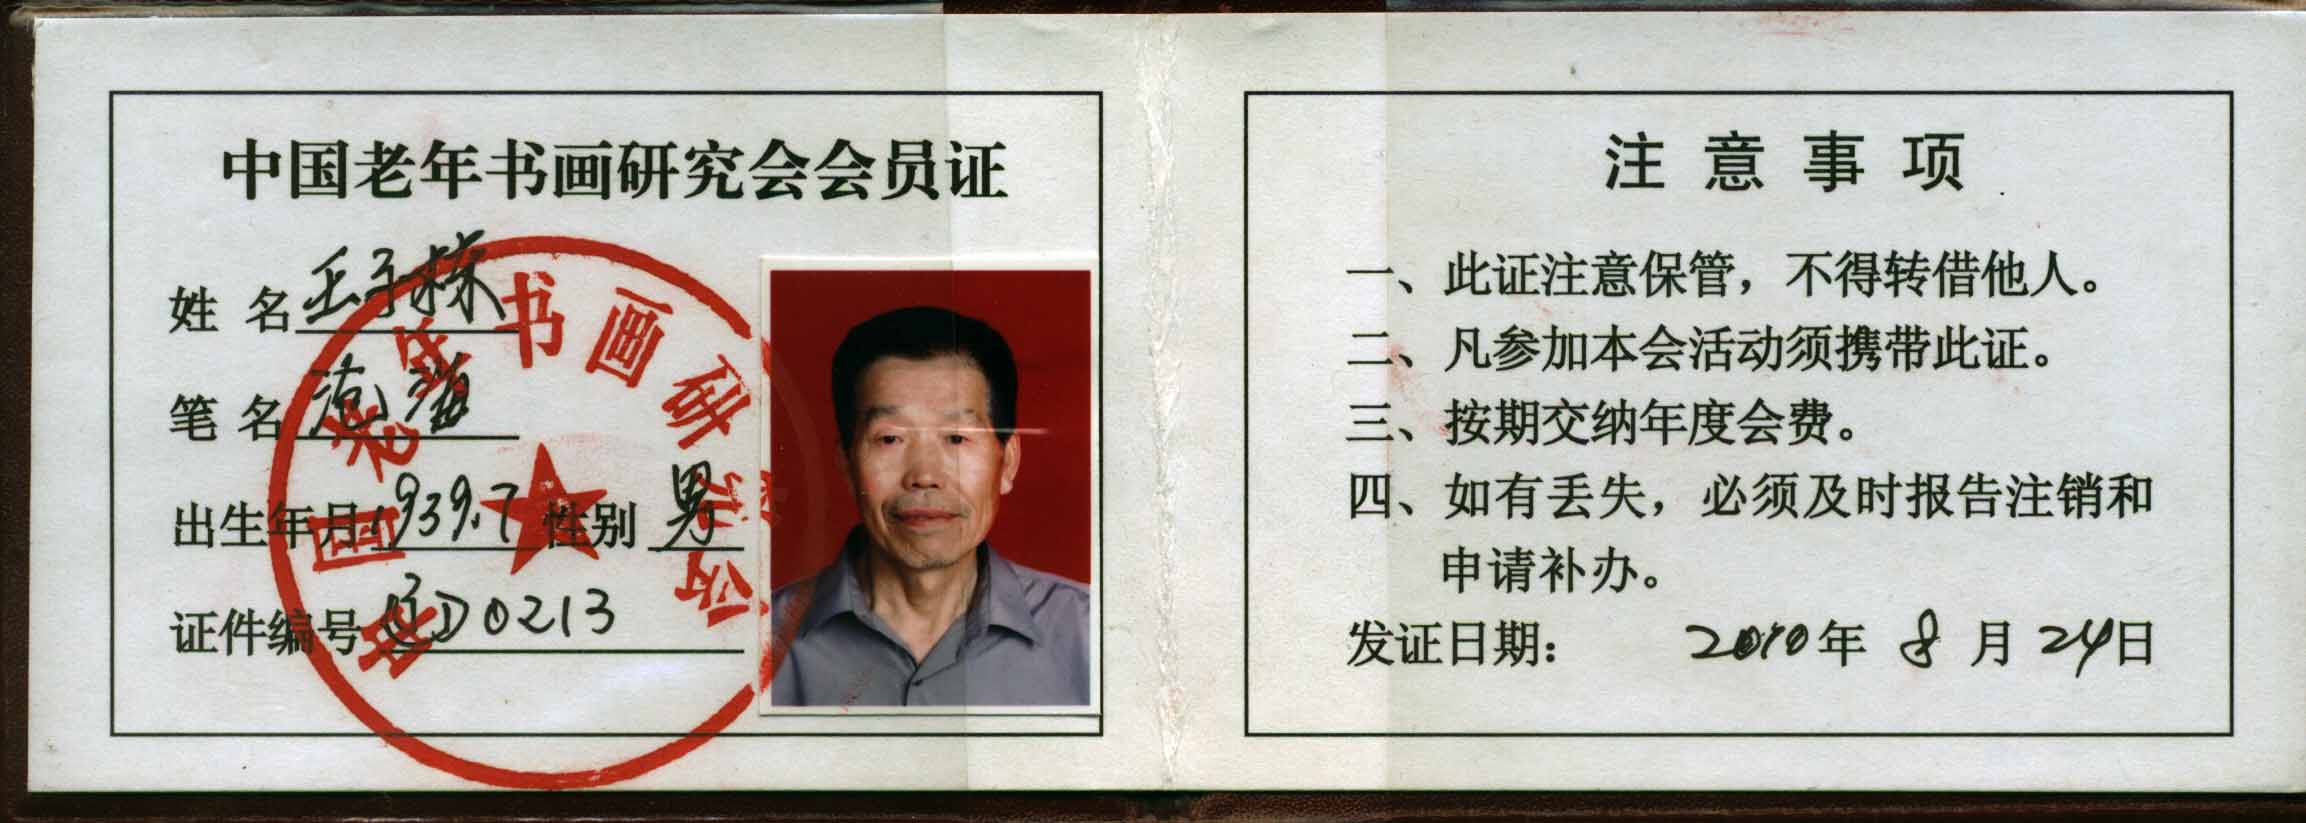 中国老年书画研究会会员证
姓 名 王子栋
笔 名
出生年月 1939.7 性别 男
证件编号 辽D0213
中国老年书画研究会
注意事项
一、此证注意保管，不得转借他人。
二、凡参加本会活动须携带此证。
三、按期交纳年度会费。
四、如有丢失，必须及时报告注销和
申请补办。
发证日期： 2010年 8 月 24日